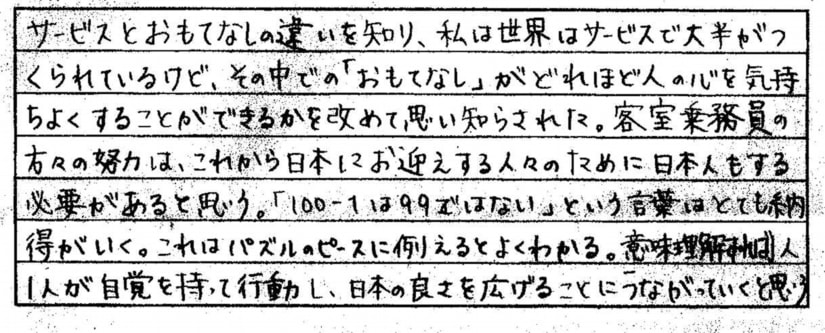 サービスとおもてなしの違いを知り、私は世界はサービスで大半がつ
くられているけど、その中での「おもてなし」がどれほど人の心を気持
ちよくすることができるかを改めて思い知らされた。客室乗務員の
方々の努力は、これから日本にお迎えする人々のために日本人もする
必要があると思う。「100-1は99ではない」という言葉はとても納
得がいく。これはパズルのピースに例えるとよくわかる。意味理解すれば1人
1人が自覚を持って行動し、日本の良さを広げることにつながっていくと思う